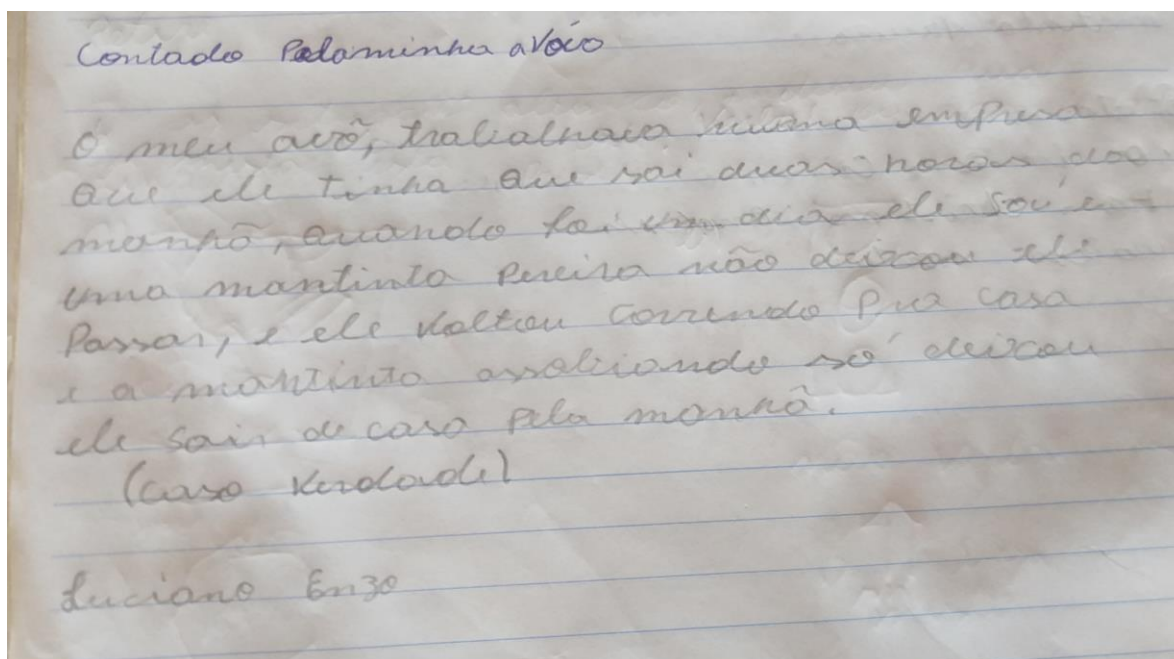 Contado Pelaminha avóio
O meu avô, trabalhava numa empresa
que ele tinha que sai duas horas da
manhã, quando foi um dia ele sou e
uma mantinta Pereira não deixou ele
Passar, e ele voltou correndo Pra casa
e a mantinta assoliando só deixou
ele sair de casa pela manhã.
(caso verdade)
Luciano Enzo